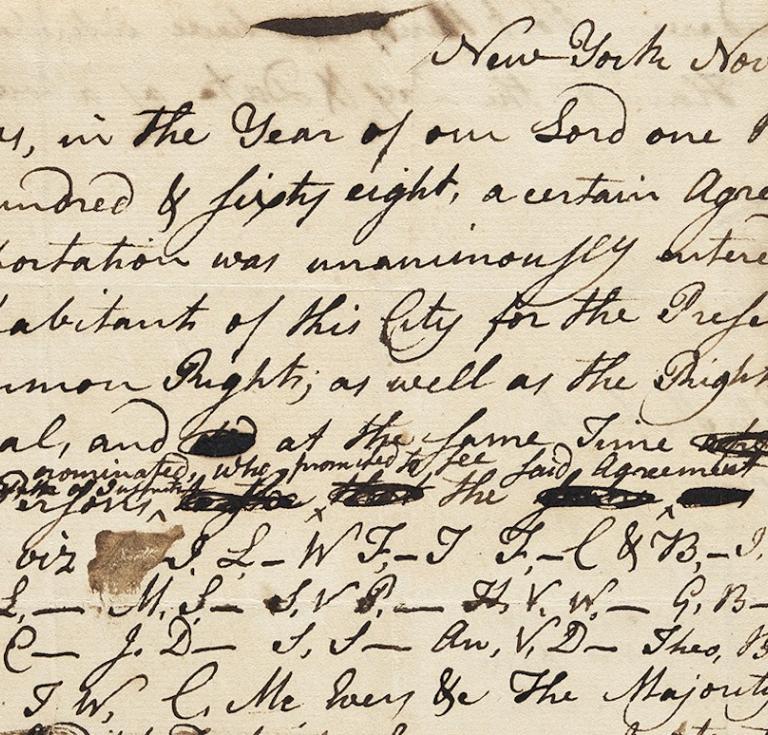 New-York Nov
in the Year of our Lord one
undred & sixty eight, a certain Agre
portation was unanimously entere
habitants of this City for the Prese
mmon Rights; as well as the Right
al, and at the same Time
nominated, who promised to see said Agreement
ersons the
viz J. L- W F,- T F,- C & B,- J.
L,- M, S- S, V P,- H, V, W,- G, B-
C- J, D- S, S- An, V, D- Theo, B
J W, C, Mc Evers &c The Majority